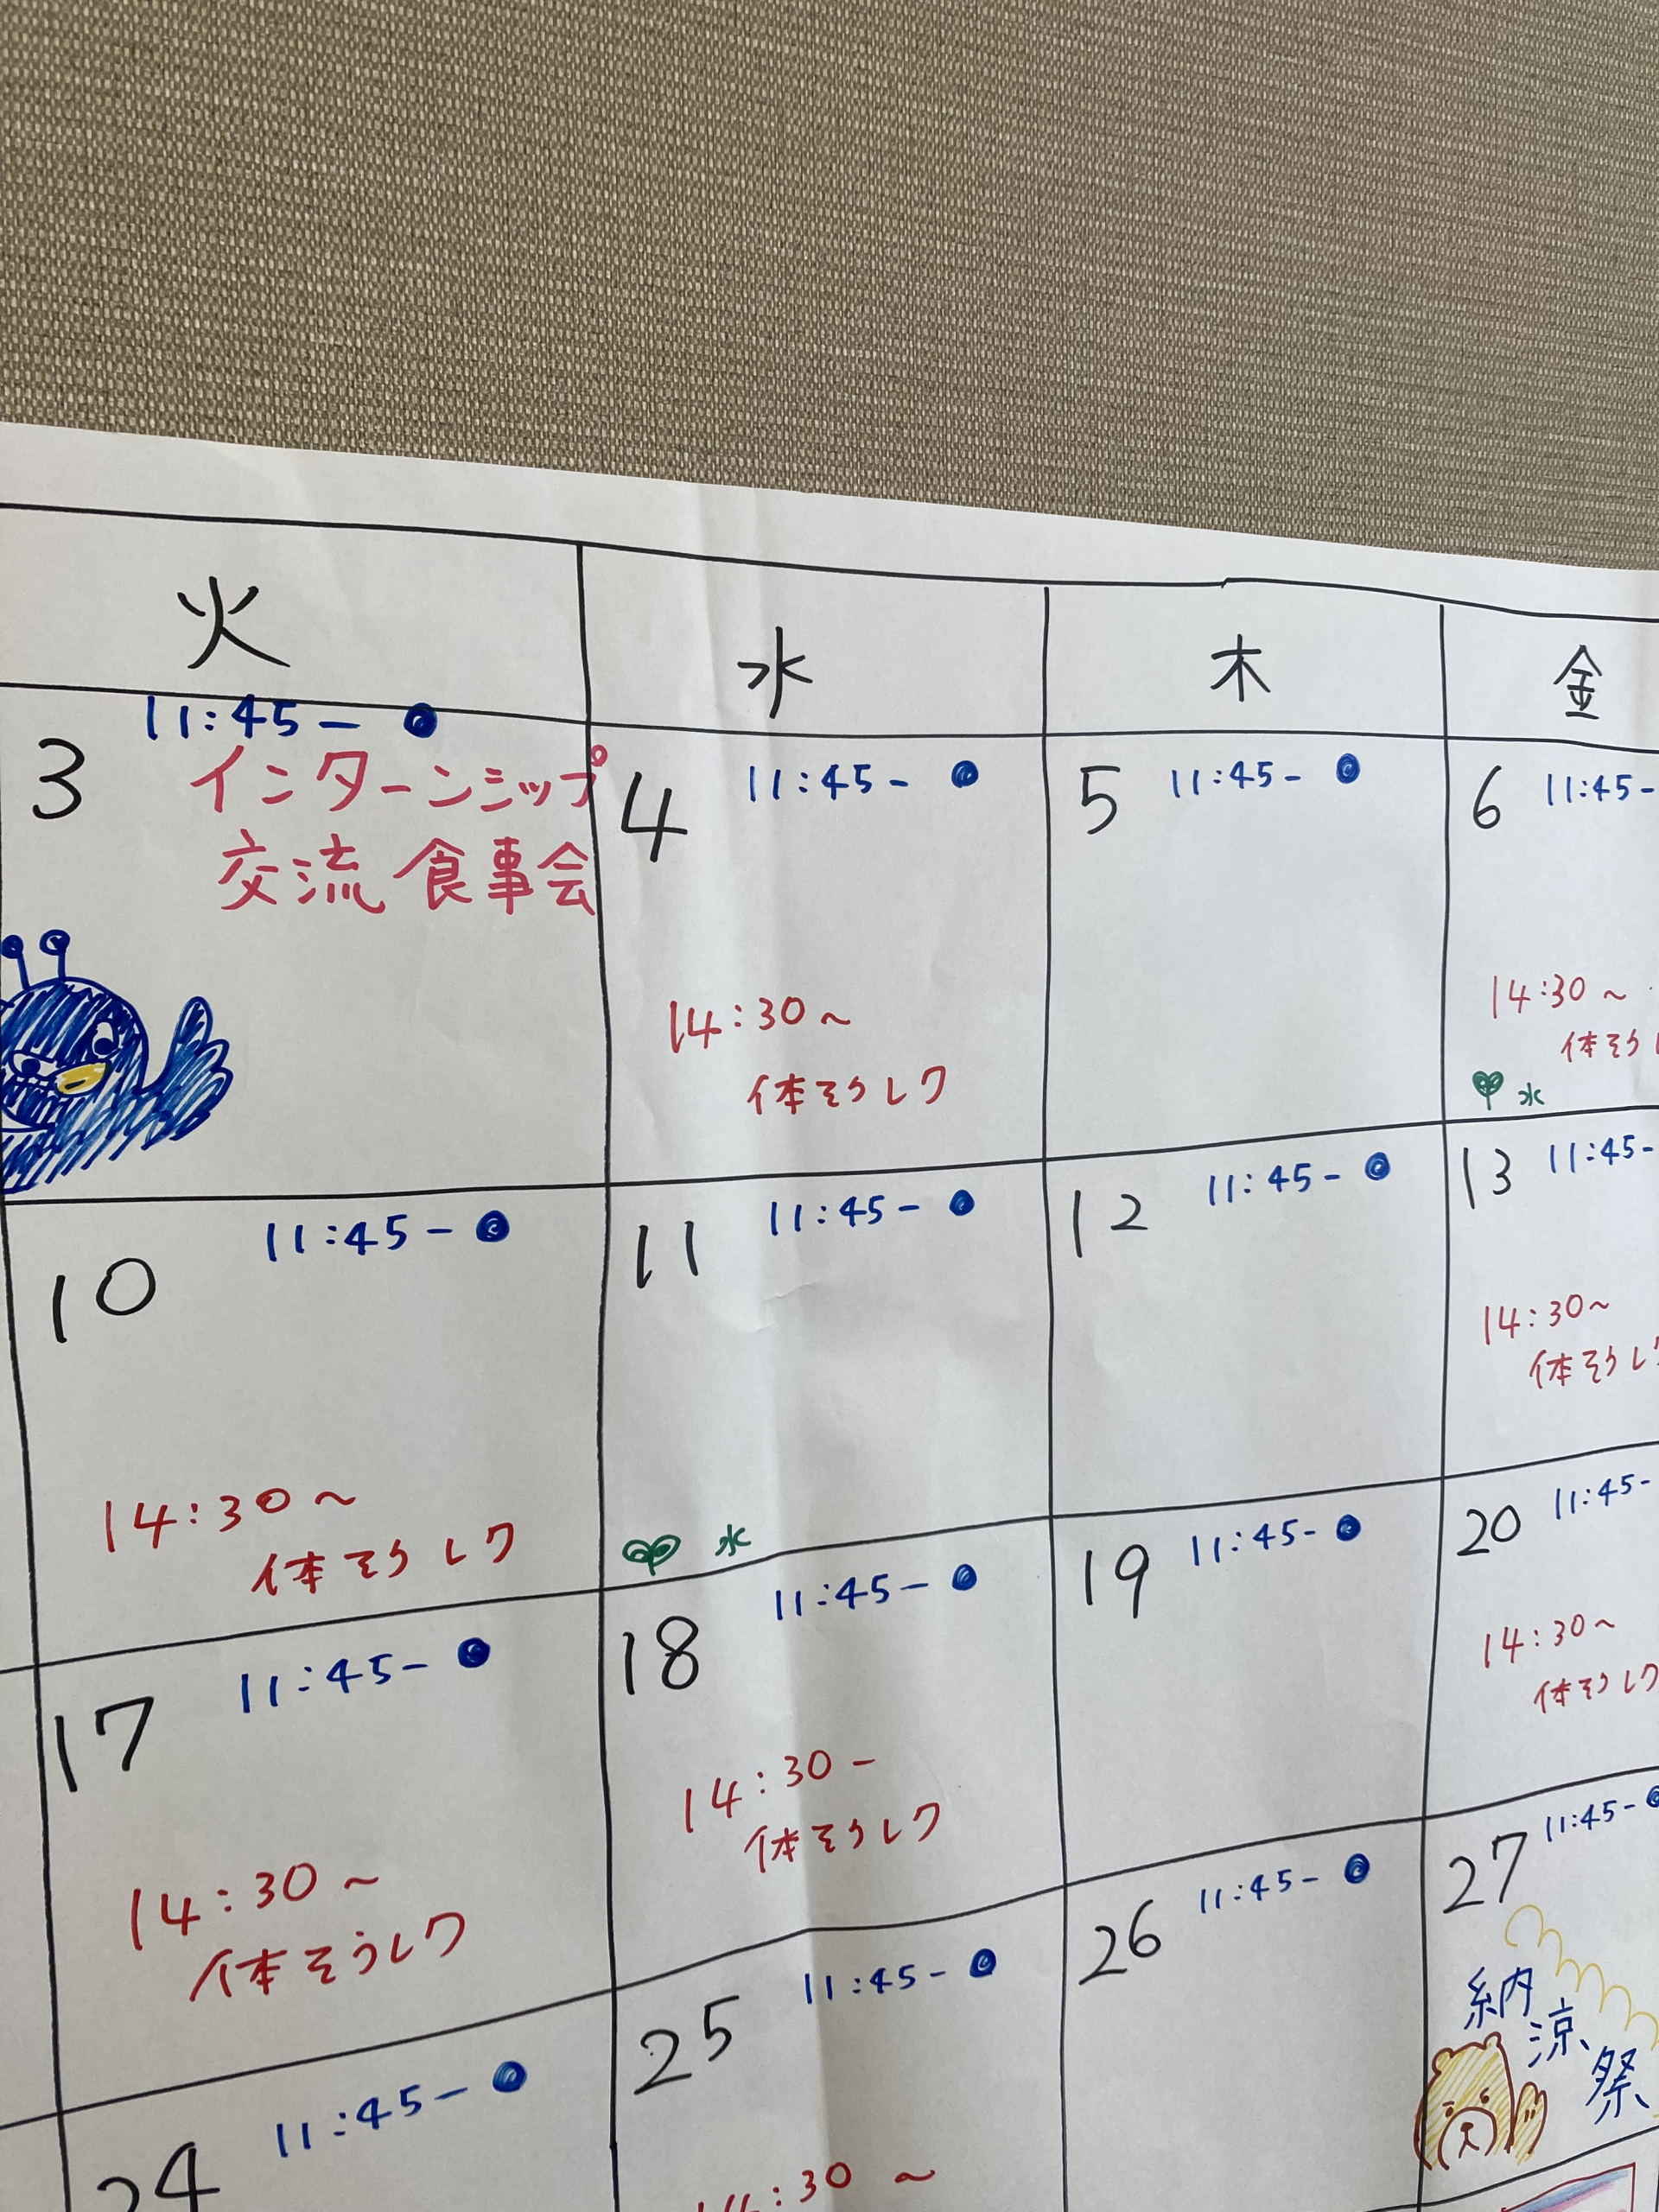 火 水 木 金
3 11:45- ●
インターンシップ
交流 食事会
4 11:45- ●
14:30~
体そうレク
5 11:45- ●
6 11:45-
14:30~
体そうレ
水
10 11:45- ●
14:30~
体そうレク
11 11:45- ●
水
12 11:45- ●
13 11:45-
14:30~
体そうレク
17 11:45- ●
14:30~
体そうレク
18 11:45- ●
14:30-
体そうレク
19 11:45- ●
20 11:45-
14:30~
体そうレク
24 11:45- ●
25 11:45- ●
14:30 ~
26 11:45- ●
27 11:45- ●
納涼祭